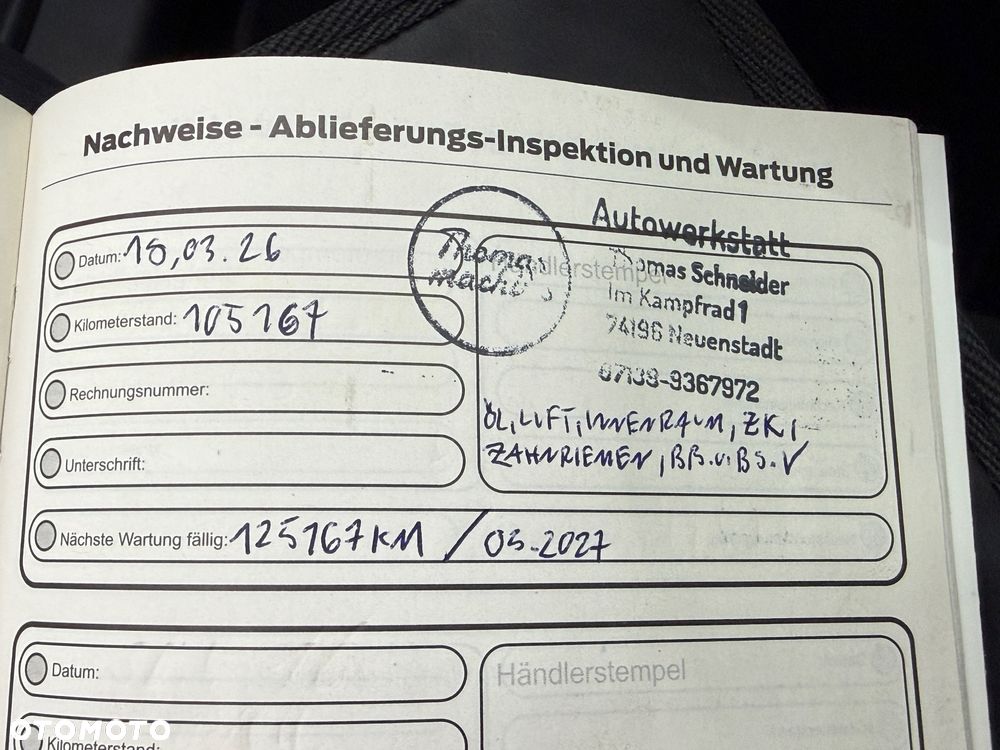 Nachweise - Ablieferungs-Inspektion und Wartung
Datum: 18,03.26
Kilometerstand: 105167
Rechnungsnummer:
Unterschrift:
Thomas
Händlerstempel
Autowerkstatt
Thomas Schneider
Im Kampfrad 1
74196 Neuenstadt
07139-9367972
ÖL, LUFT, INNENRAUM, ZK,
ZAHNRIEMEN, BB.u.BS.V
Nächste Wartung fällig: 125167 KM / 03.2027
Datum:
Händlerstempel
Kilometerstand:
OTOMOTO